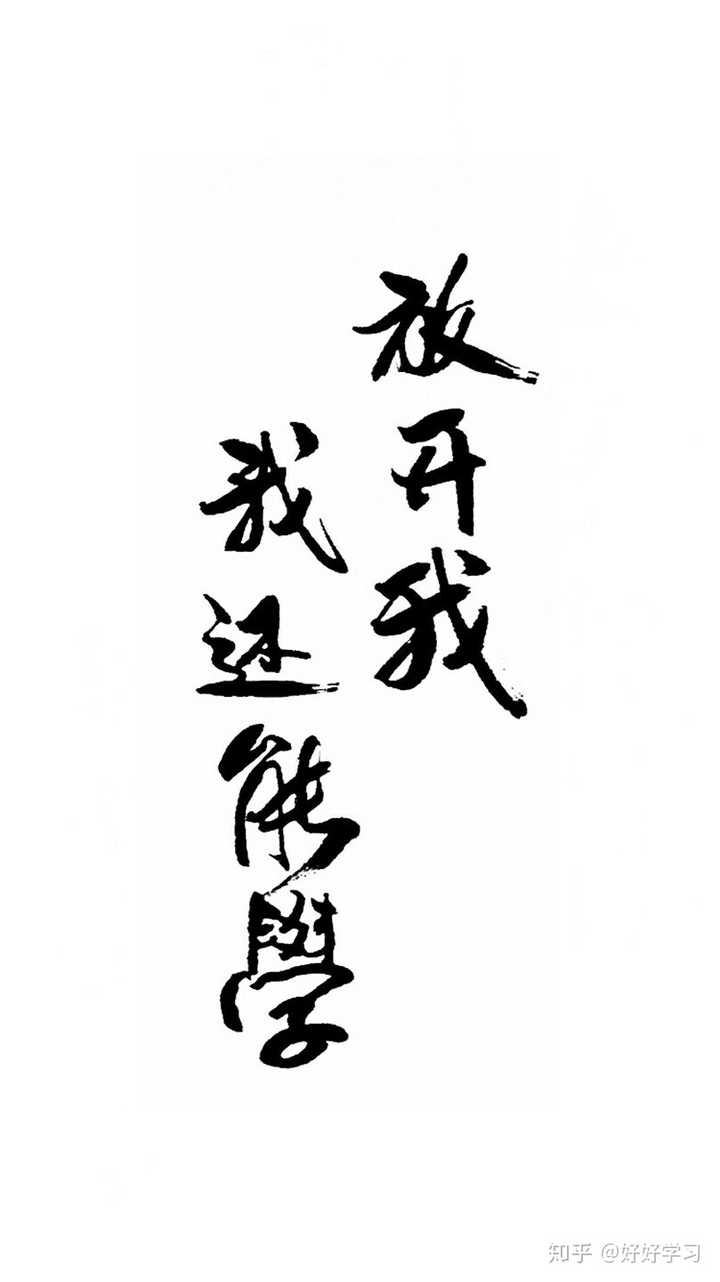 放开我
我还能學
知乎 @好好学习